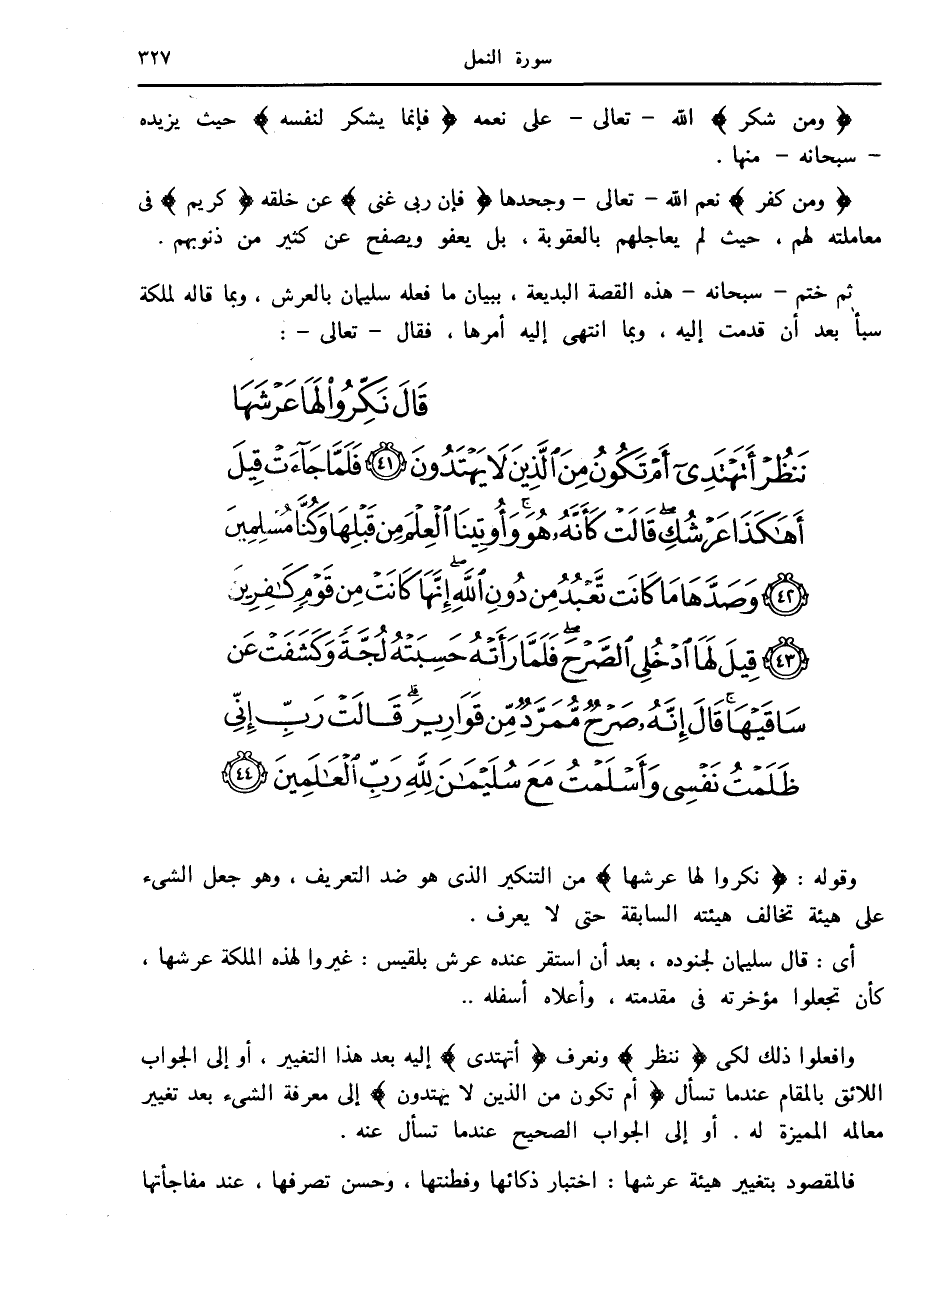 سورة النمل ٣٢٧
﴿ ومن شكر ﴾ الله - تعالى - على نعمه ﴿ فإنما يشكر لنفسه ﴾ حيث يزيده
- سبحانه - منها .
﴿ ومن كفر ﴾ نعم الله - تعالى - وجحدها ﴿ فإن ربى غنى ﴾ عن خلقه ﴿ كريم ﴾ فى
معاملته لهم ، حيث لم يعاجلهم بالعقوبة ، بل يعفو ويصفح عن كثير من ذنوبهم .
ثم ختم - سبحانه - هذه القصة البديعة ، ببيان ما فعله سليمان بالعرش ، وبما قاله لملكة
سبأ بعد أن قدمت إليه ، وبما انتهى إليه أمرها ، فقال - تعالى - :
قَالَ نَكِّرُواْ لَهَا عَرْشَهَا
نَنظُرْ أَتَهْتَدِىٓ أَمْ تَكُونُ مِنَ ٱلَّذِينَ لَا يَهْتَدُونَ ﴿٤١﴾ فَلَمَّا جَآءَتْ قِيلَ
أَهَٰكَذَا عَرْشُكِ ۖ قَالَتْ كَأَنَّهُۥ هُوَ ۚ وَأُوتِينَا ٱلْعِلْمَ مِن قَبْلِهَا وَكُنَّا مُسْلِمِينَ
﴿٤٢﴾ وَصَدَّهَا مَا كَانَت تَّعْبُدُ مِن دُونِ ٱللَّهِ ۖ إِنَّهَا كَانَتْ مِن قَوْمٍ كَٰفِرِينَ
﴿٤٣﴾ قِيلَ لَهَا ٱدْخُلِى ٱلصَّرْحَ ۖ فَلَمَّا رَأَتْهُ حَسِبَتْهُ لُجَّةً وَكَشَفَتْ عَن
سَاقَيْهَا ۚ قَالَ إِنَّهُۥ صَرْحٌ مُّمَرَّدٌ مِّن قَوَارِيرَ ۗ قَالَتْ رَبِّ إِنِّى
ظَلَمْتُ نَفْسِى وَأَسْلَمْتُ مَعَ سُلَيْمَٰنَ لِلَّهِ رَبِّ ٱلْعَٰلَمِينَ ﴿٤٤﴾
وقوله : ﴿ نكروا لها عرشها ﴾ من التنكير الذى هو ضد التعريف ، وهو جعل الشىء
على هيئة تخالف هيئته السابقة حتى لا يعرف .
أى : قال سليمان لجنوده ، بعد أن استقر عنده عرش بلقيس : غيروا لهذه الملكة عرشها ،
كأن تجعلوا مؤخرته فى مقدمته ، وأعلاه أسفله ..
وافعلوا ذلك لكى ﴿ ننظر ﴾ ونعرف ﴿ أتهتدى ﴾ إليه بعد هذا التغيير ، أو إلى الجواب
اللائق بالمقام عندما تسأل ﴿ أم تكون من الذين لا يهتدون ﴾ إلى معرفة الشىء بعد تغيير
معالمه المميزة له . أو إلى الجواب الصحيح عندما تسأل عنه .
فالمقصود بتغيير هيئة عرشها : اختبار ذكائها وفطنتها ، وحسن تصرفها ، عند مفاجأتها